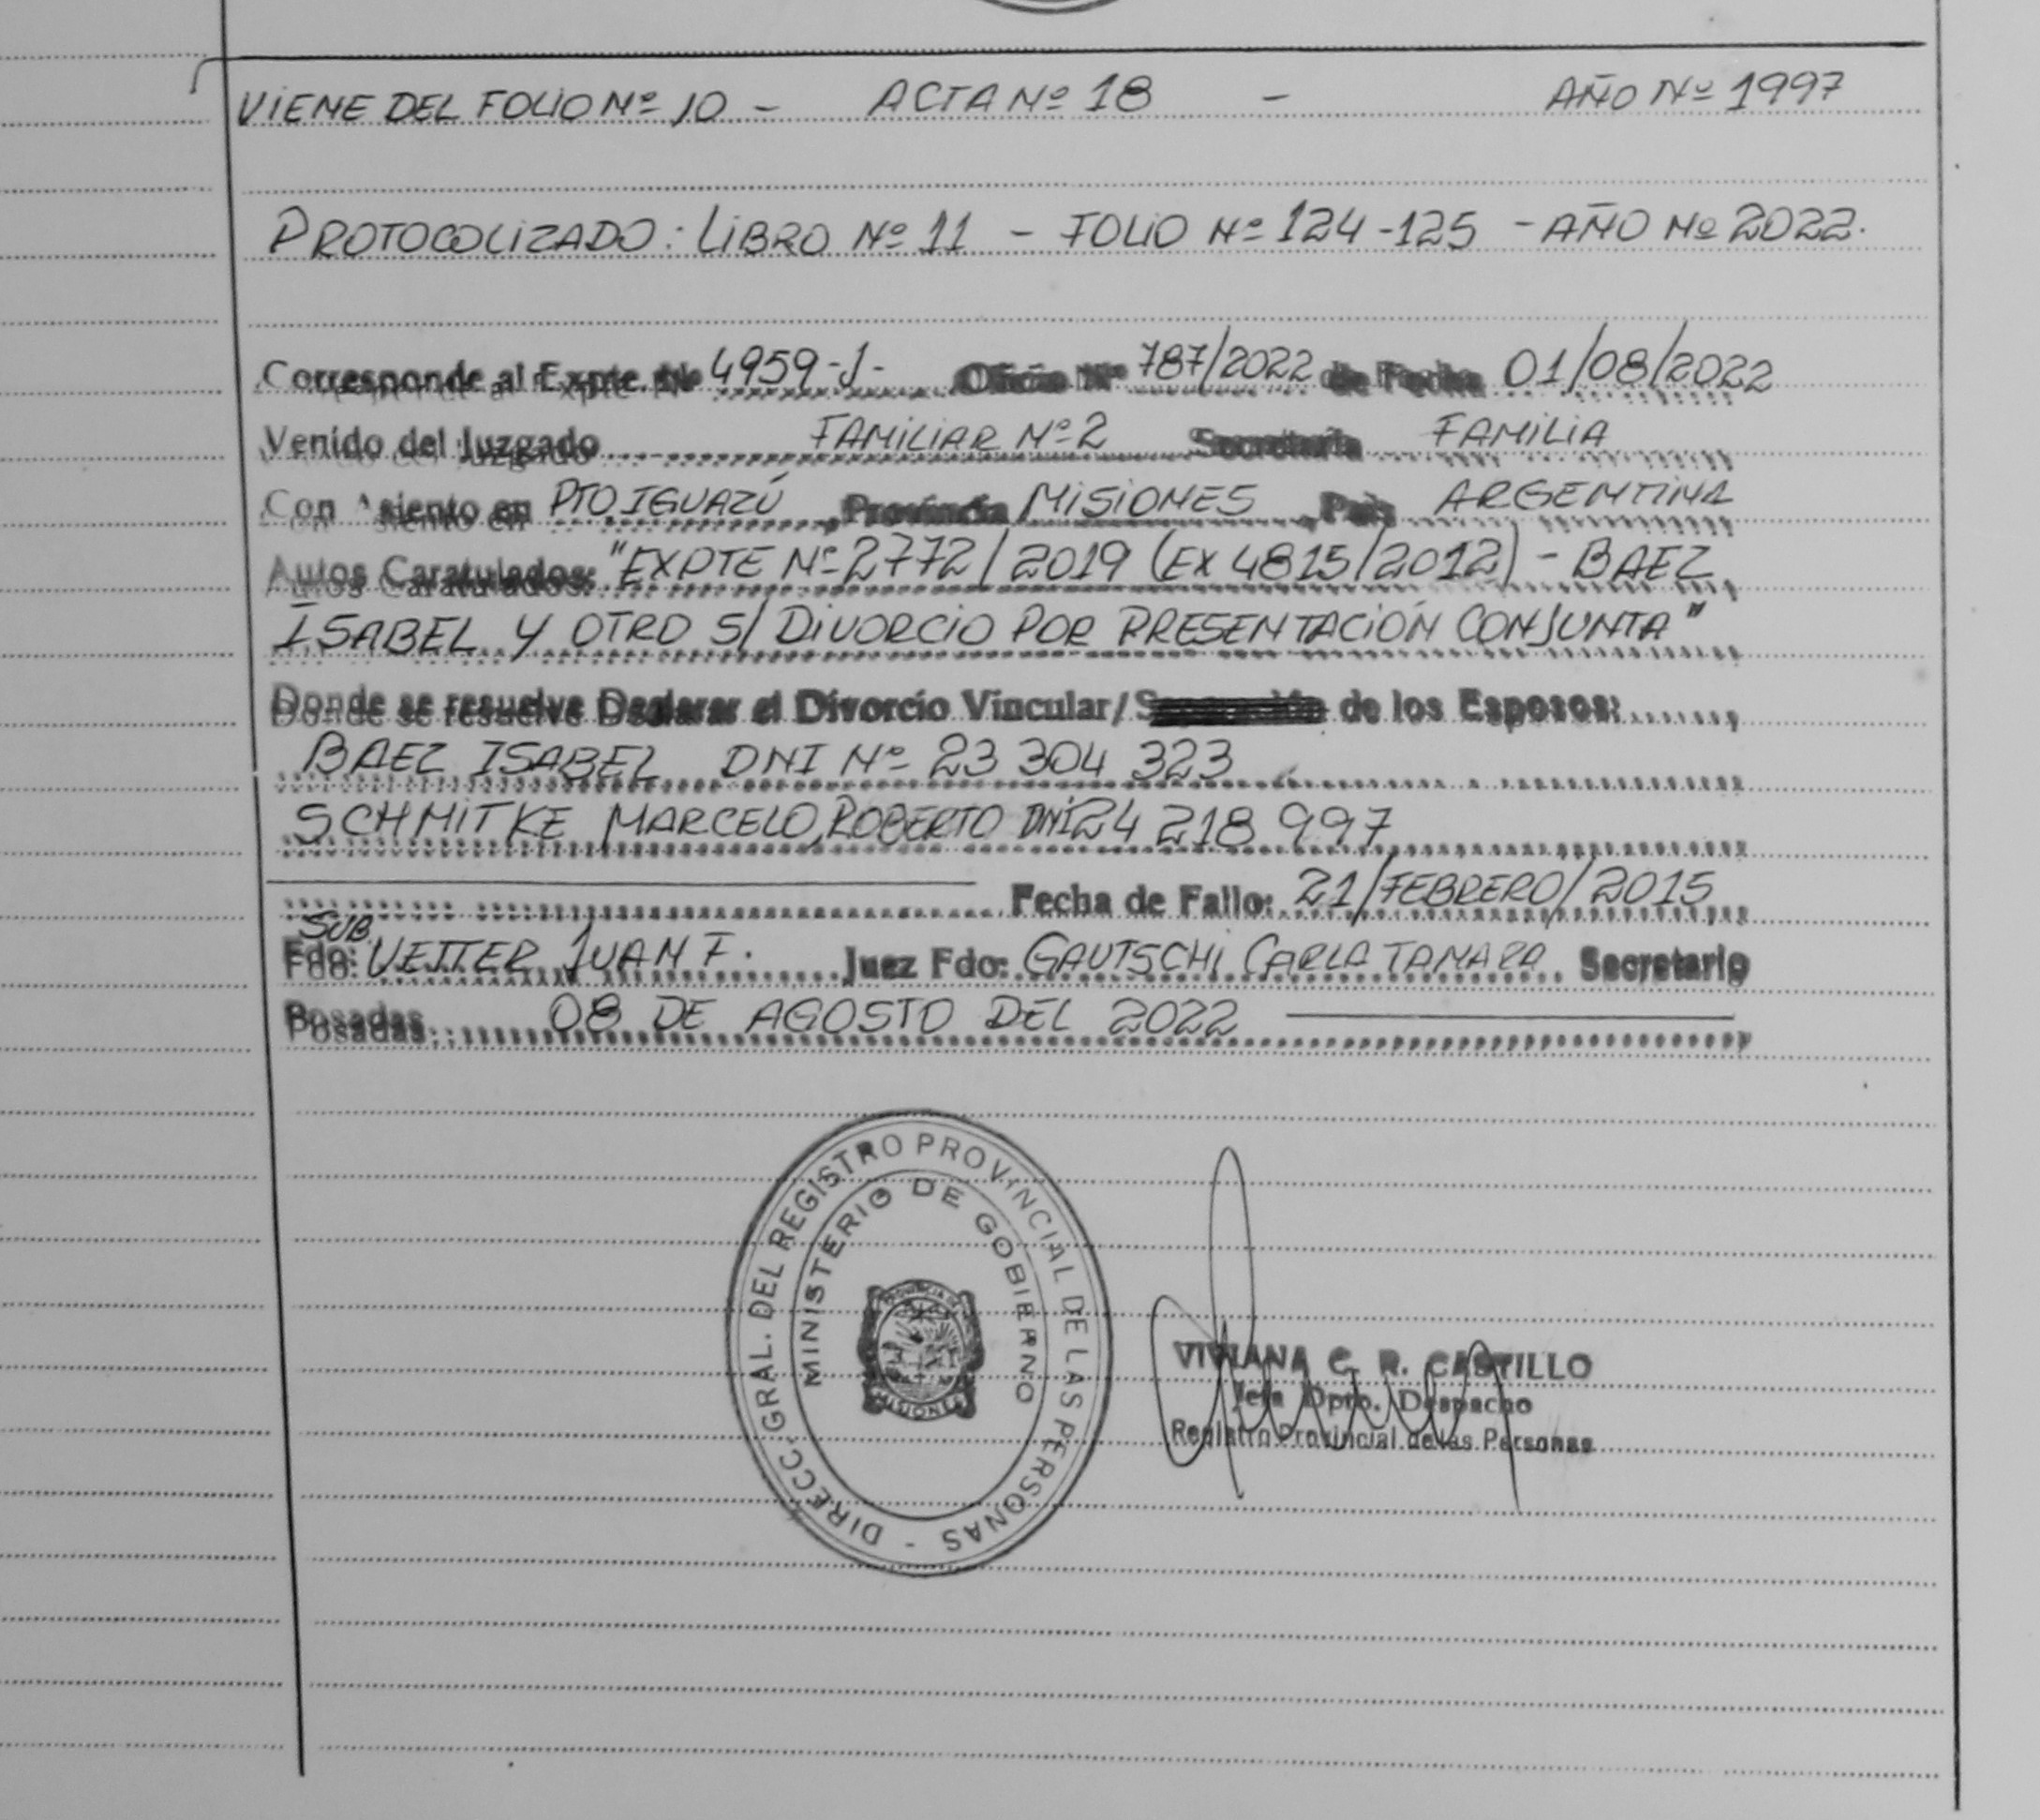 VIENE DEL FOLIO Nº 10 - ACTA Nº 18 - AÑO Nº 1997
PROTOCOLIZADO: LIBRO Nº 11 - FOLIO Nº 124-125 - AÑO Nº 2022.
Corresponde al Expte. Nº 4959-J- Oficio Nº 787/2022 de Fecha 01/08/2022
Venido del Juzgado FAMILIAR Nº 2 Secretaría FAMILIA
Con Asiento en PTO IGUAZÚ, Provincia MISIONES, País ARGENTINA
Autos Caratulados: "EXPTE Nº 2772/2019 (EX 4815/2012) - BAEZ
ISABEL Y OTRO S/ DIVORCIO POR PRESENTACIÓN CONJUNTA"
Donde se resuelve Declarar el Divorcio Vincular/ de los Esposos:
BAEZ ISABEL DNI Nº 23 304 323
SCHMITKE MARCELO, ROBERTO DNI 24 218 997
Fecha de Fallo: 21/FEBRERO/2015
SUB
Fdo: VETTER JUAN F. Juez Fdo: GAUTSCHI CARLA TAMARA Secretario
Posadas, 08 DE AGOSTO DEL 2022
DIRECC. GRAL. DEL REGISTRO PROVINCIAL DE LAS PERSONAS -
MINISTERIO DE GOBIERNO
PROVINCIA DE
MISIONES
VIVIANA G. R. CASTILLO
Jefa Dpto. Despacho
Registro Provincial de las Personas